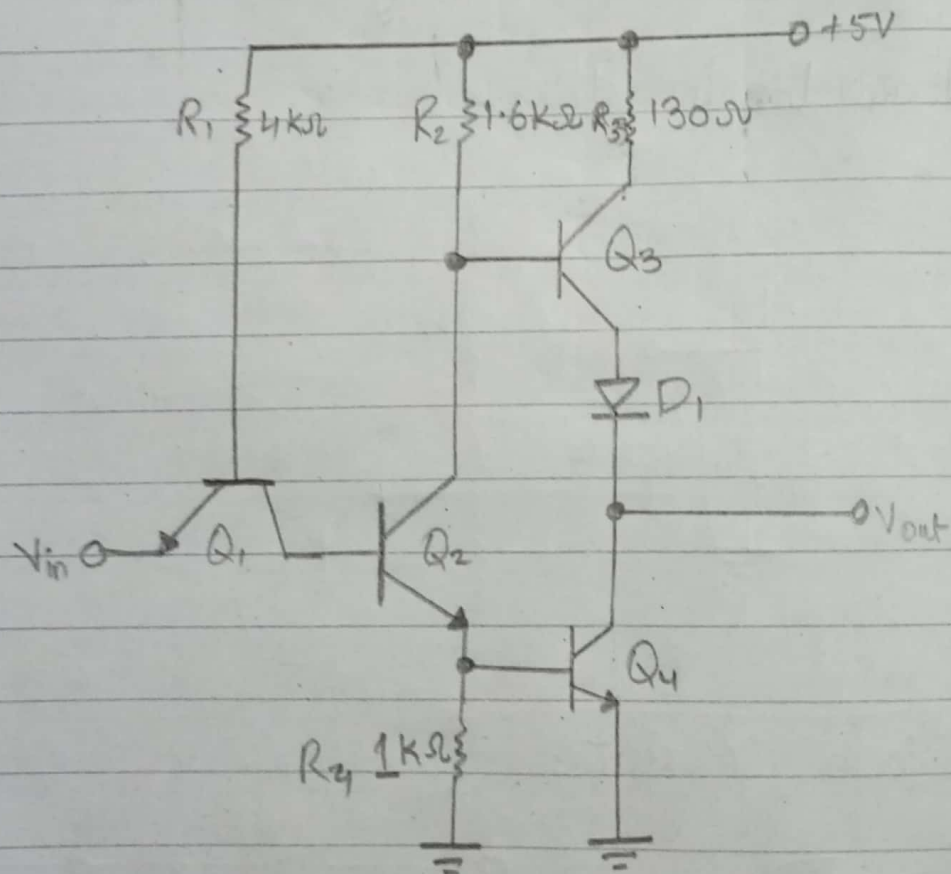 +5V
R1 4kΩ R2 1.6kΩ R3 130Ω
Q3
D1
Vin Q1 Q2 Vout
Q4
R4 1kΩ